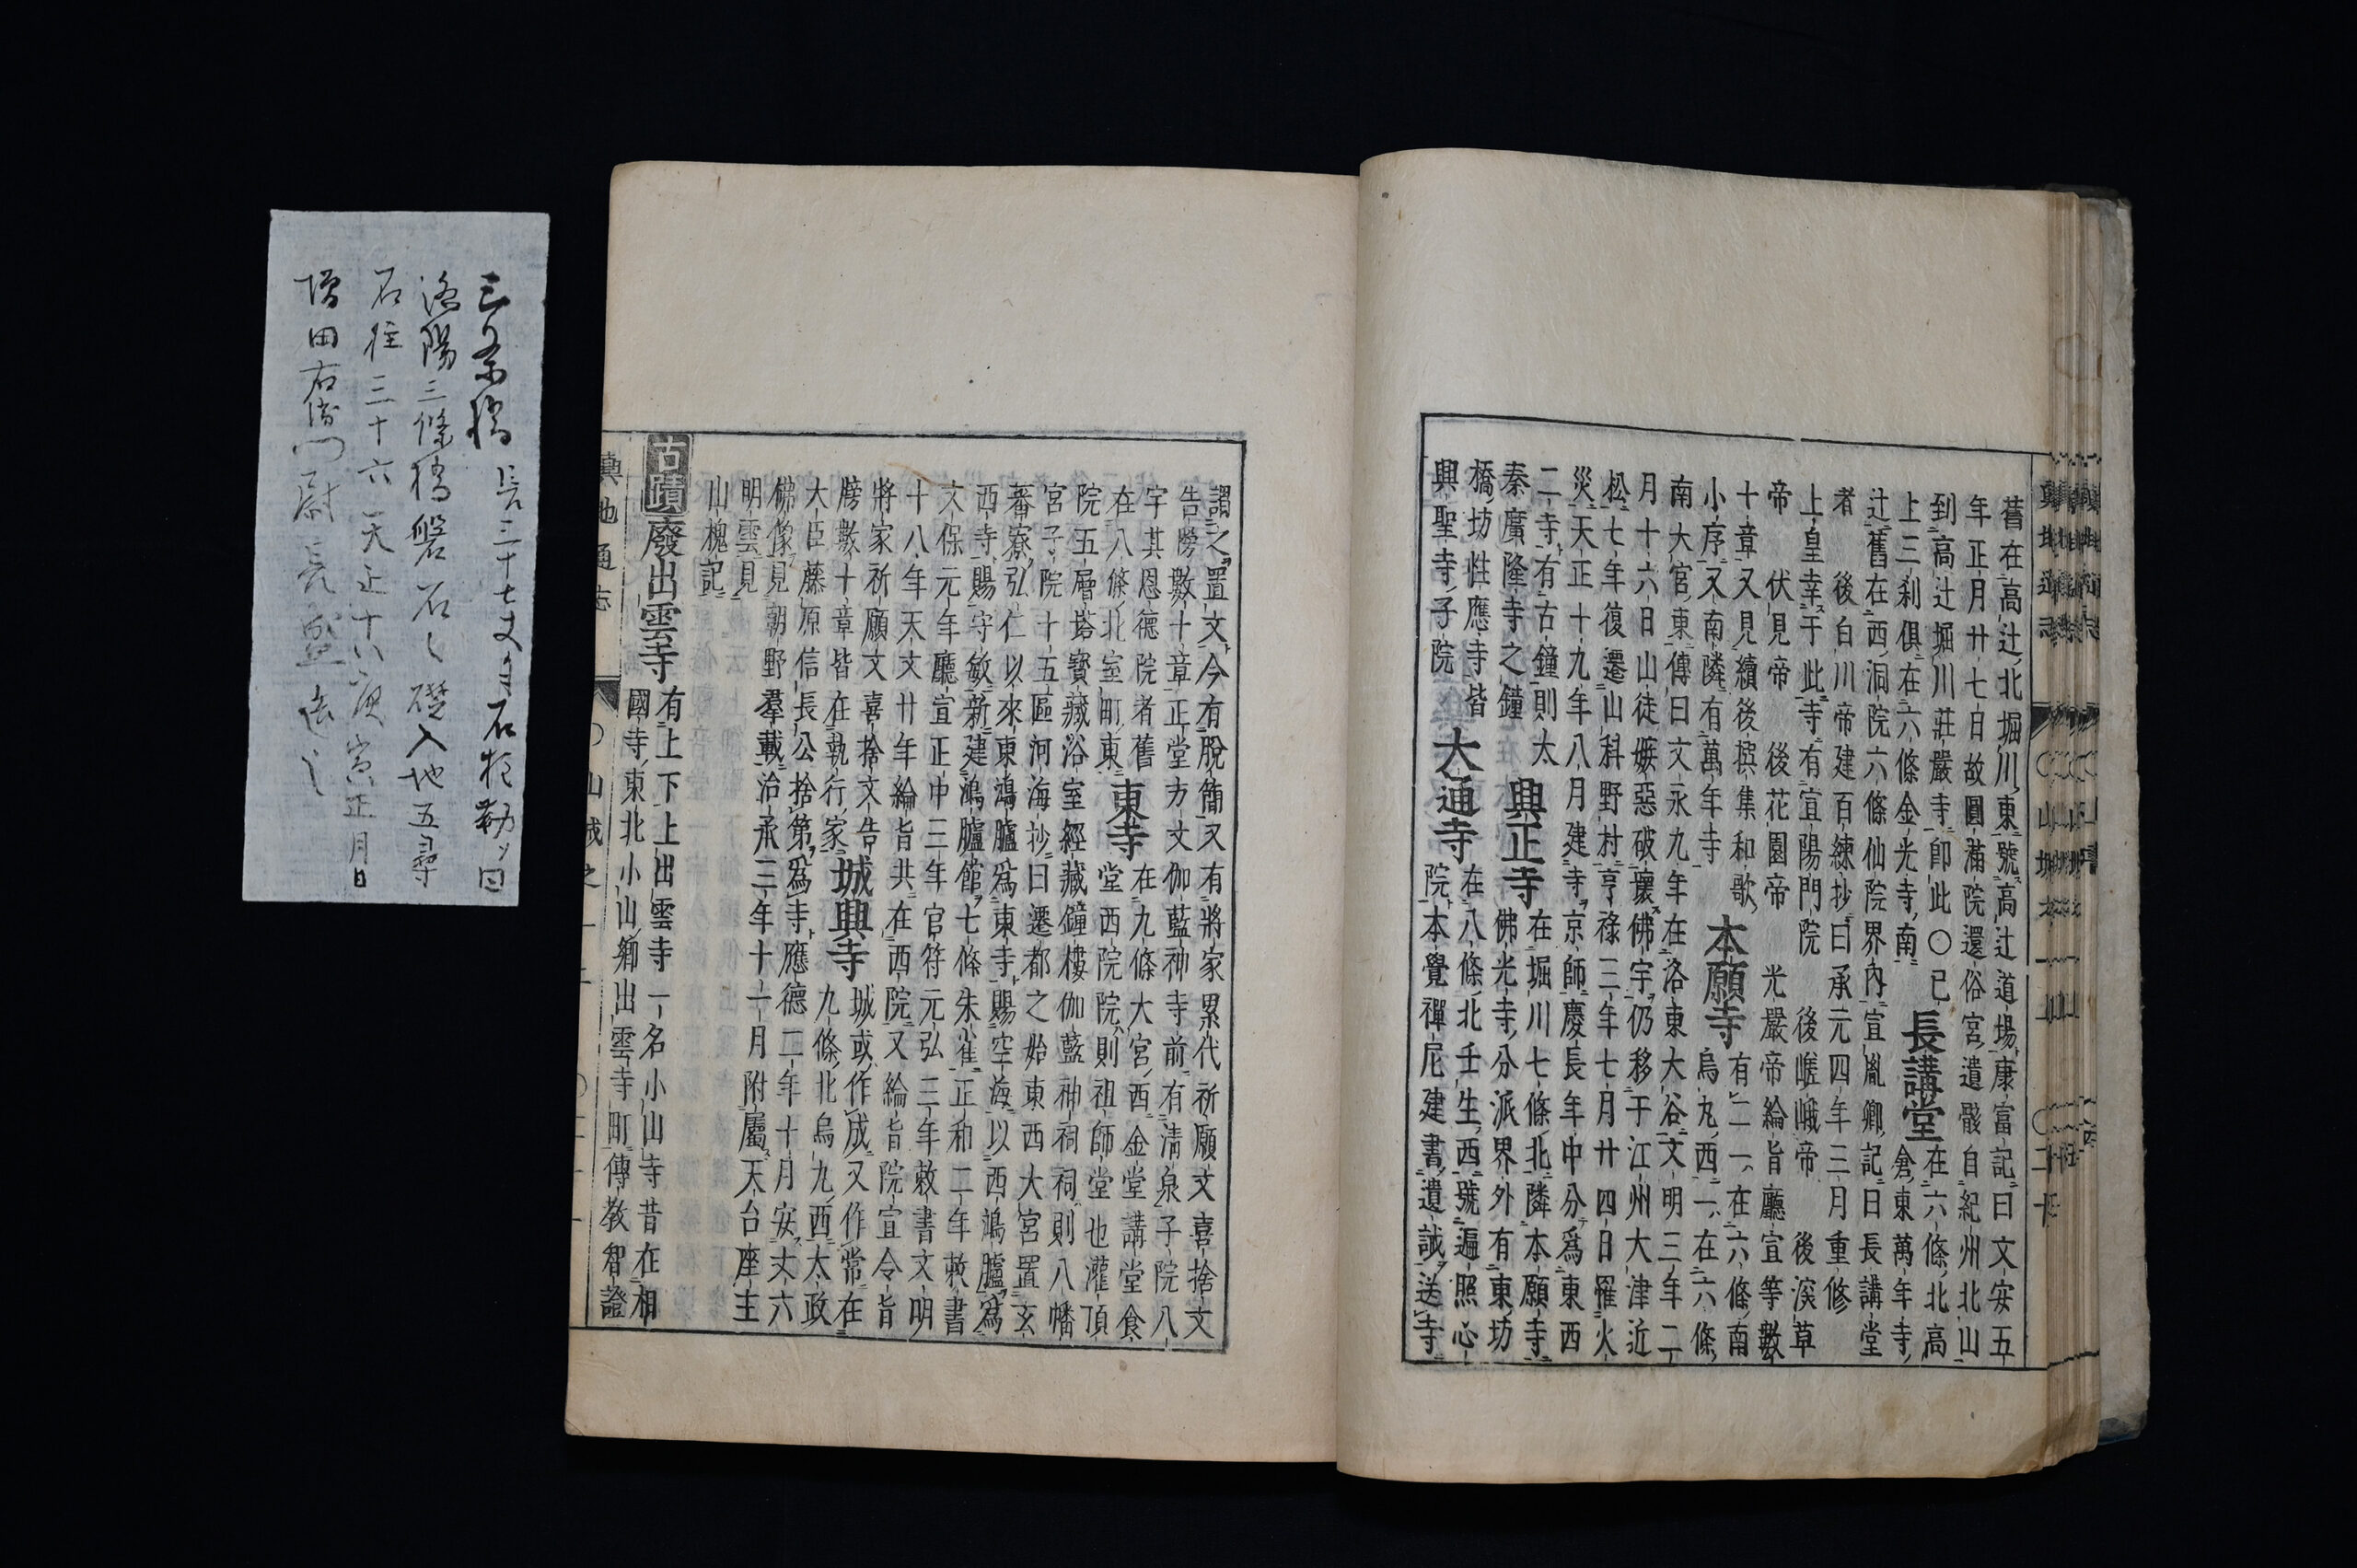 舊在高辻北堀川東號高辻道場康富記曰文安五
年正月廿七日故圓滿院還俗宮遺骸自紀州北山
到高辻堀川莊嚴寺卽此〇已
上三刹俱在六條金光寺南
長講堂
在六條北高
倉東萬年寺
辻舊在西洞院六條仙院界內宣胤卿記曰長講堂
者後白川帝建百練抄曰承元四年三月重修
上皇幸于此寺有宣陽門院 後嵯峨帝 後深草
帝 伏見帝 後花園帝 光嚴帝綸旨廳宣等數
十章又見續後撰集和歌
小序又南隣有萬年寺
本願寺
有二一在六條南
烏丸西一在六條
南大宮東傳曰文永九年在洛東大谷文明三年二
月十六日山徒嫉惡破壞佛宇仍移于江州大津近
松七年復遷山科野村享祿三年七月廿四日罹火
災天正十九年八月建寺京師慶長年中分爲東西
二寺有古鐘則太
秦廣隆寺之鐘
興正寺
在堀川七條北隣本願寺
佛光寺分派界外有東坊
橋坊性應寺皆
興聖寺子院
大通寺
在八條北壬生西號遍照心
院本覺禪尼建書遺誡送寺
謂之置文今有脫簡又有將家累代祈願文喜捨文
告牓數十章正堂方丈伽藍神寺前有淸泉子院八
宇其恩德院者舊
在八條北室町東
東寺
在九條大宮西金堂講堂食
堂西院院則祖師堂也灌頂
院五層塔寶藏浴室經藏鐘樓伽藍神祠祠則八幡
宮子院十五區河海抄曰遷都之始東西大宮置玄
蕃寮弘仁以來東鴻臚爲東寺賜空海以西鴻臚爲
西寺賜守敏新建鴻臚館七條朱雀正和二年敕書
文保元年廳宣正中三年官符元弘三年敕書文明
十八年天文廿年綸旨共在西院又綸旨院宣令旨
將家祈願文喜捨文告
牓數十章皆在執行家
城興寺
城或作成又作常在
九條北烏丸西太政
大臣藤原信長公捨第爲寺應德二年十月安丈六
佛像見朝野羣載治承三年十一月附屬天台座主
明雲見
山槐記
古蹟
廢出雲寺
有上下上出雲寺一名小山寺昔在相
國寺東北小山鄕出雲寺町傳教智證
輿地通志
〇山城之一
三条橋 長三十七丈
洛陽三條橋磐石之礎入地五尋
石柱三十六 天正十八庚寅正月日
增田右衛門尉長盛造之